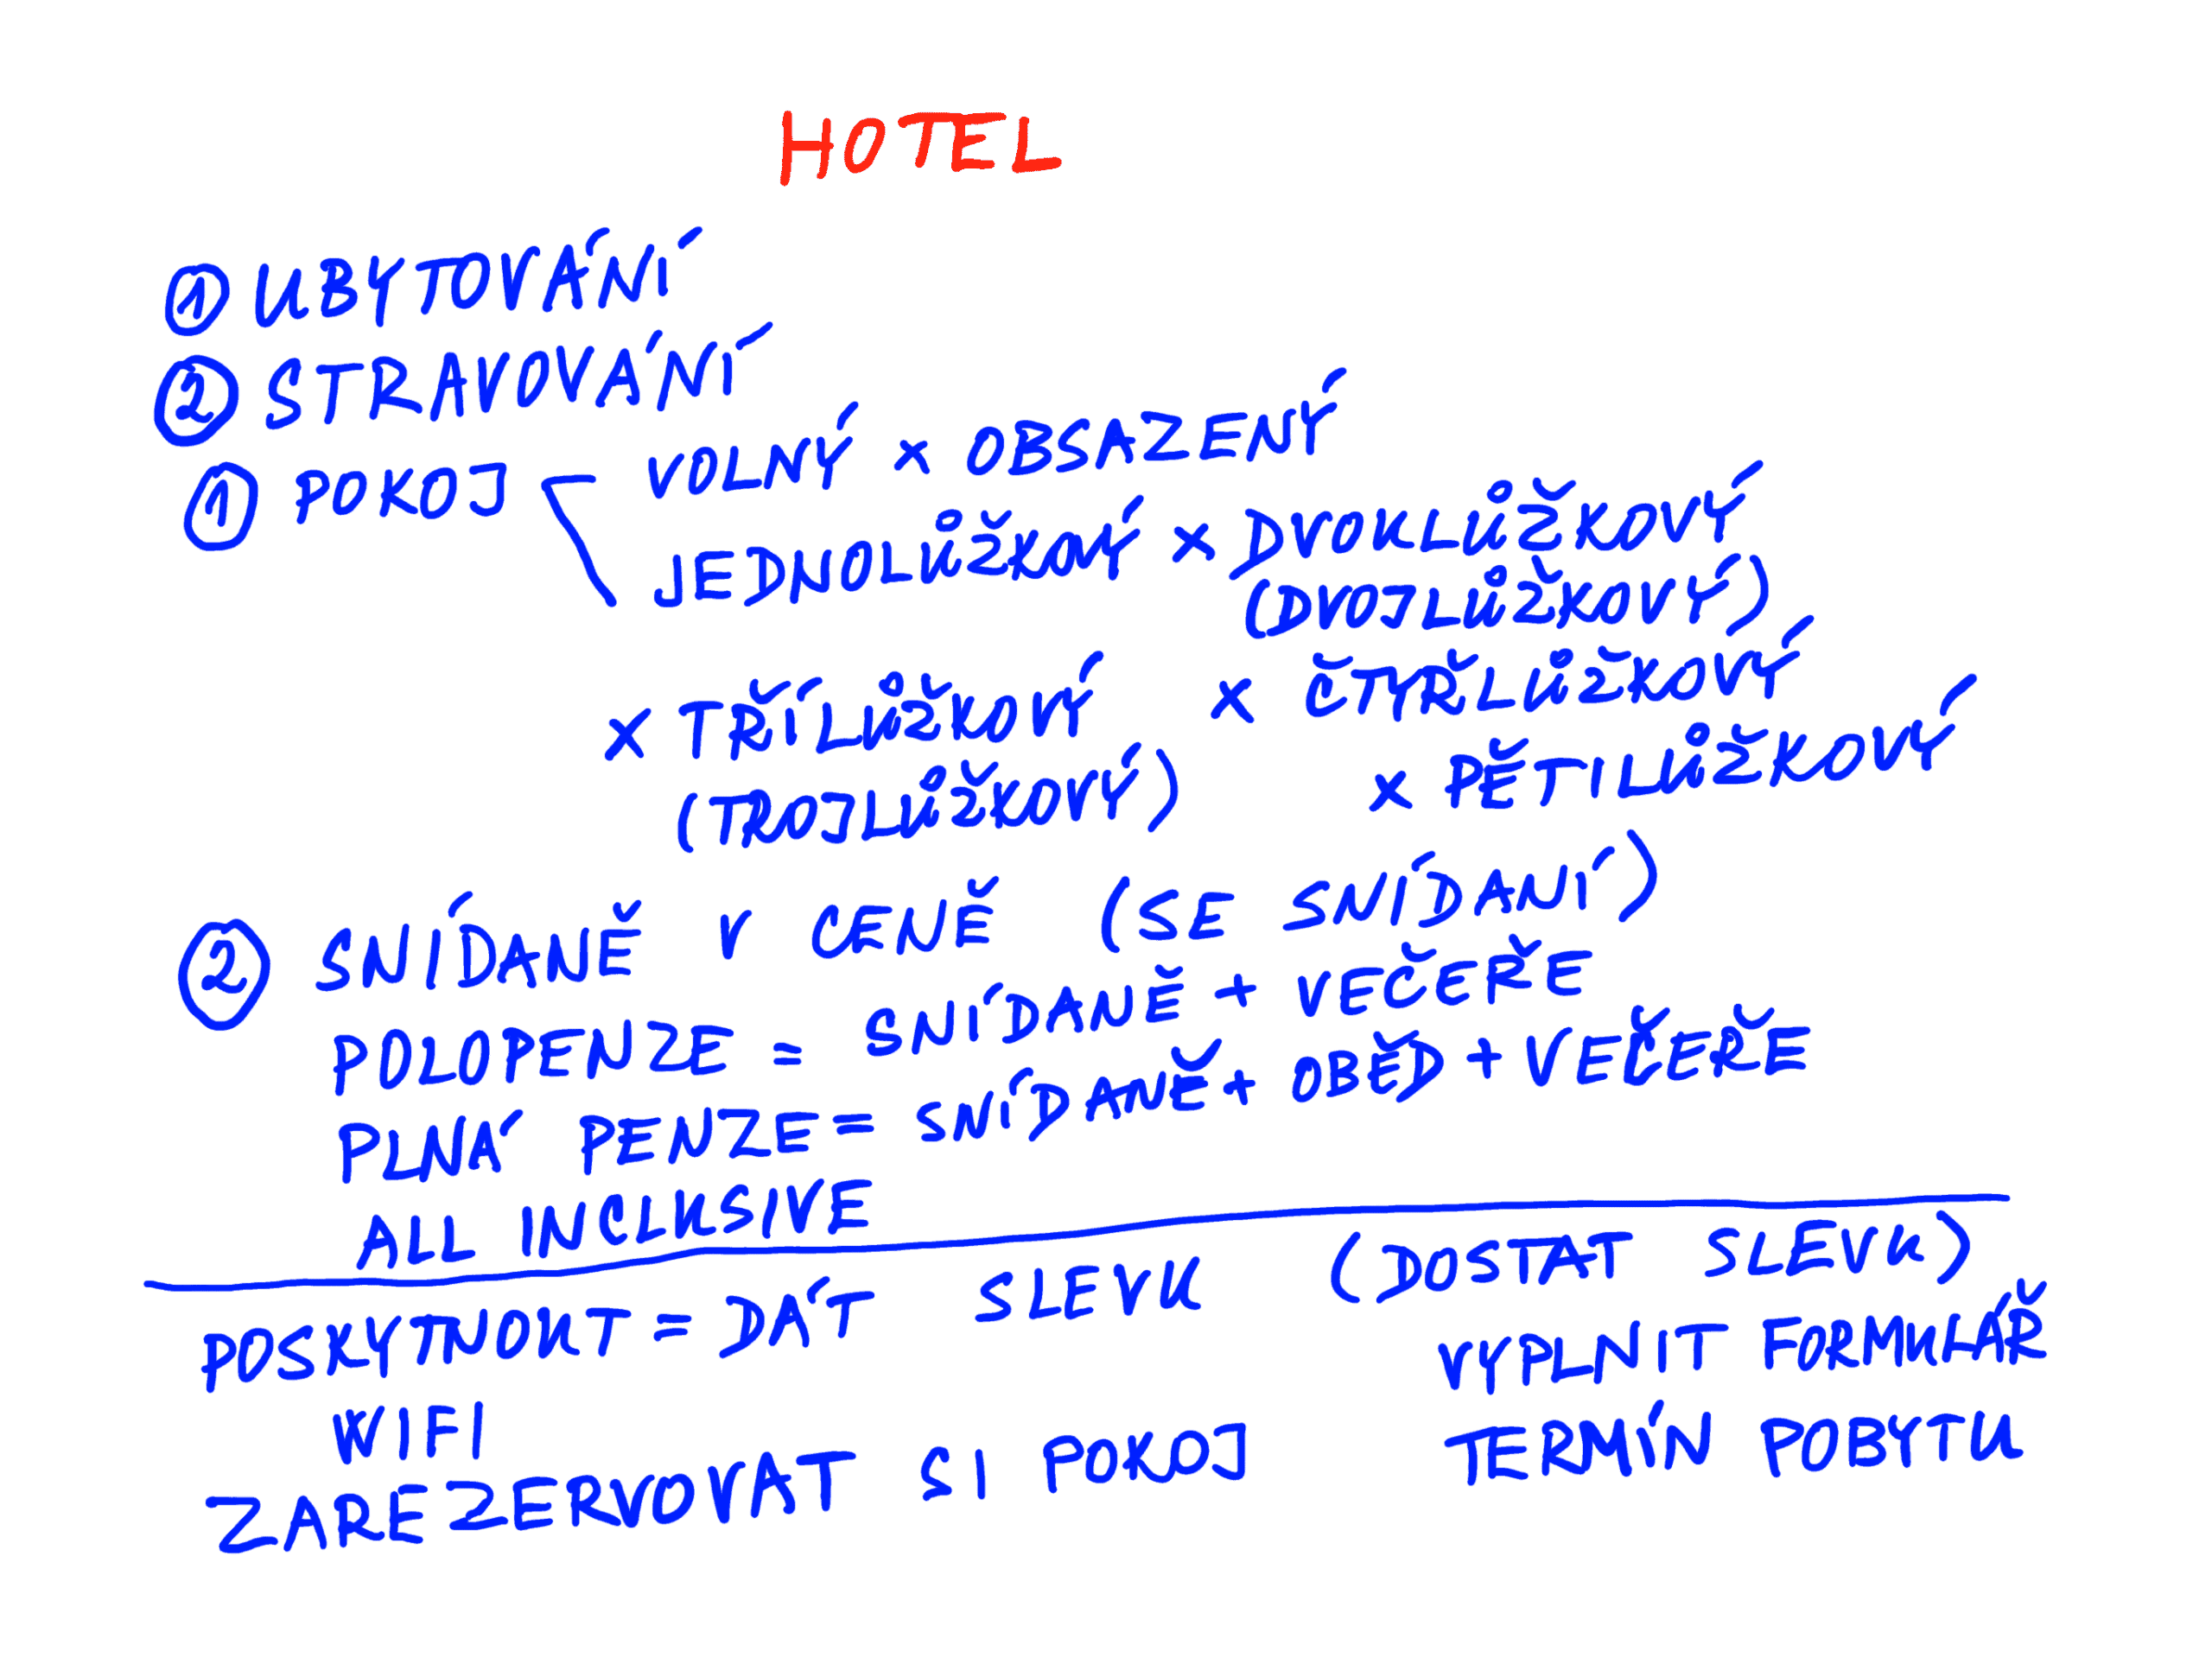 HOTEL
① UBYTOVÁNÍ
② STRAVOVÁNÍ
① POKOJ VOLNÝ × OBSAZENÝ
JEDNOLŮŽKOVÝ × DVOULŮŽKOVÝ
(DVOJLŮŽKOVÝ)
× TŘÍLŮŽKOVÝ × ČTYŘLŮŽKOVÝ
(TROJLŮŽKOVÝ) × PĚTILŮŽKOVÝ
② SNÍDANĚ V CENĚ (SE SNÍDANÍ)
POLOPENZE = SNÍDANĚ + VEČEŘE
PLNÁ PENZE = SNÍDANĚ + OBĚD + VEČEŘE
ALL INCLUSIVE
POSKYTNOUT = DÁT SLEVU (DOSTAT SLEVU)
WIFI VYPLNIT FORMULÁŘ
ZAREZERVOVAT SI POKOJ TERMÍN POBYTU